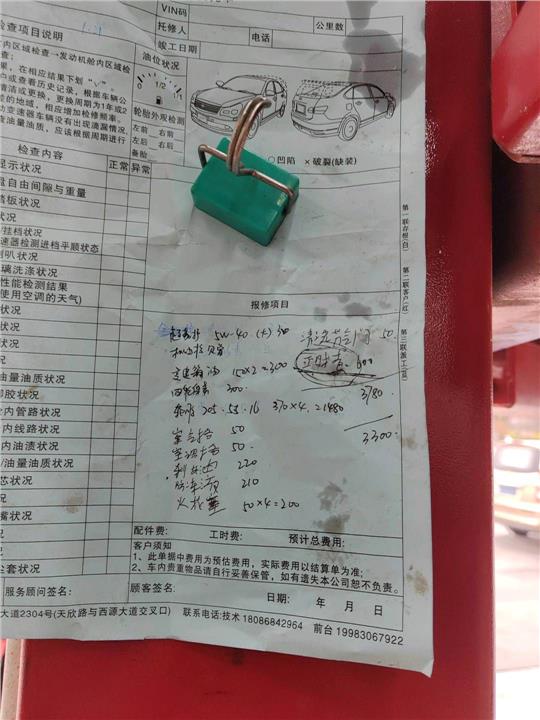 VIN码
托修人 公里数
竣工日期 电话
检查项目说明
油位状况
1/2
轮胎外观检测
左前 右前
左后 右后
备胎
○凹陷 ×破裂(缺装)
内区域检查→发动机舱内区域检
查：
果，在相应结果下划"√"。
户或查看历史记录，根据车辆公
清洁或更换，更换周期为1年或2
的地域，相应增加检修频率。
动变速器车辆没有出现渗漏情况，
查油量油质，应该根据周期进行
检查内容 正常 异常
显示状况
盘自由间隙与重量
踏板状况
状况
/挂档状况
速器检测进档平顺状态
喇叭状况
璃洗涤状况
性能检测结果
使用空调的天气)
状况
状况
状况
油量油质状况
脚胶状况
内管路状况
内线路状况
内油渍状况
/油量油质状况
芯状况
嘴状况
尘套状况
第一联存根(白)
第二联客户(红)
第三联派工(蓝)
报修项目
5W-40
清洗节气门 50.
变速箱油 150×2=300
正时 600
300.
205.55.16 370×4.=1480
3780.
3300.
50
50.
220
210
火花塞 50×4=200
配件费: 工时费: 预计总费用:
客户须知
1、此单据中费用为预估费用，实际费用以结算单为准;
2、车内贵重物品请自行妥善保管，如有遗失本公司恕不负责。
服务顾问签名: 顾客签名: 日期: 年 月 日
大道2304号(天欣路与西源大道交叉口) 联系电话:技术 18086842964 前台 19983067922